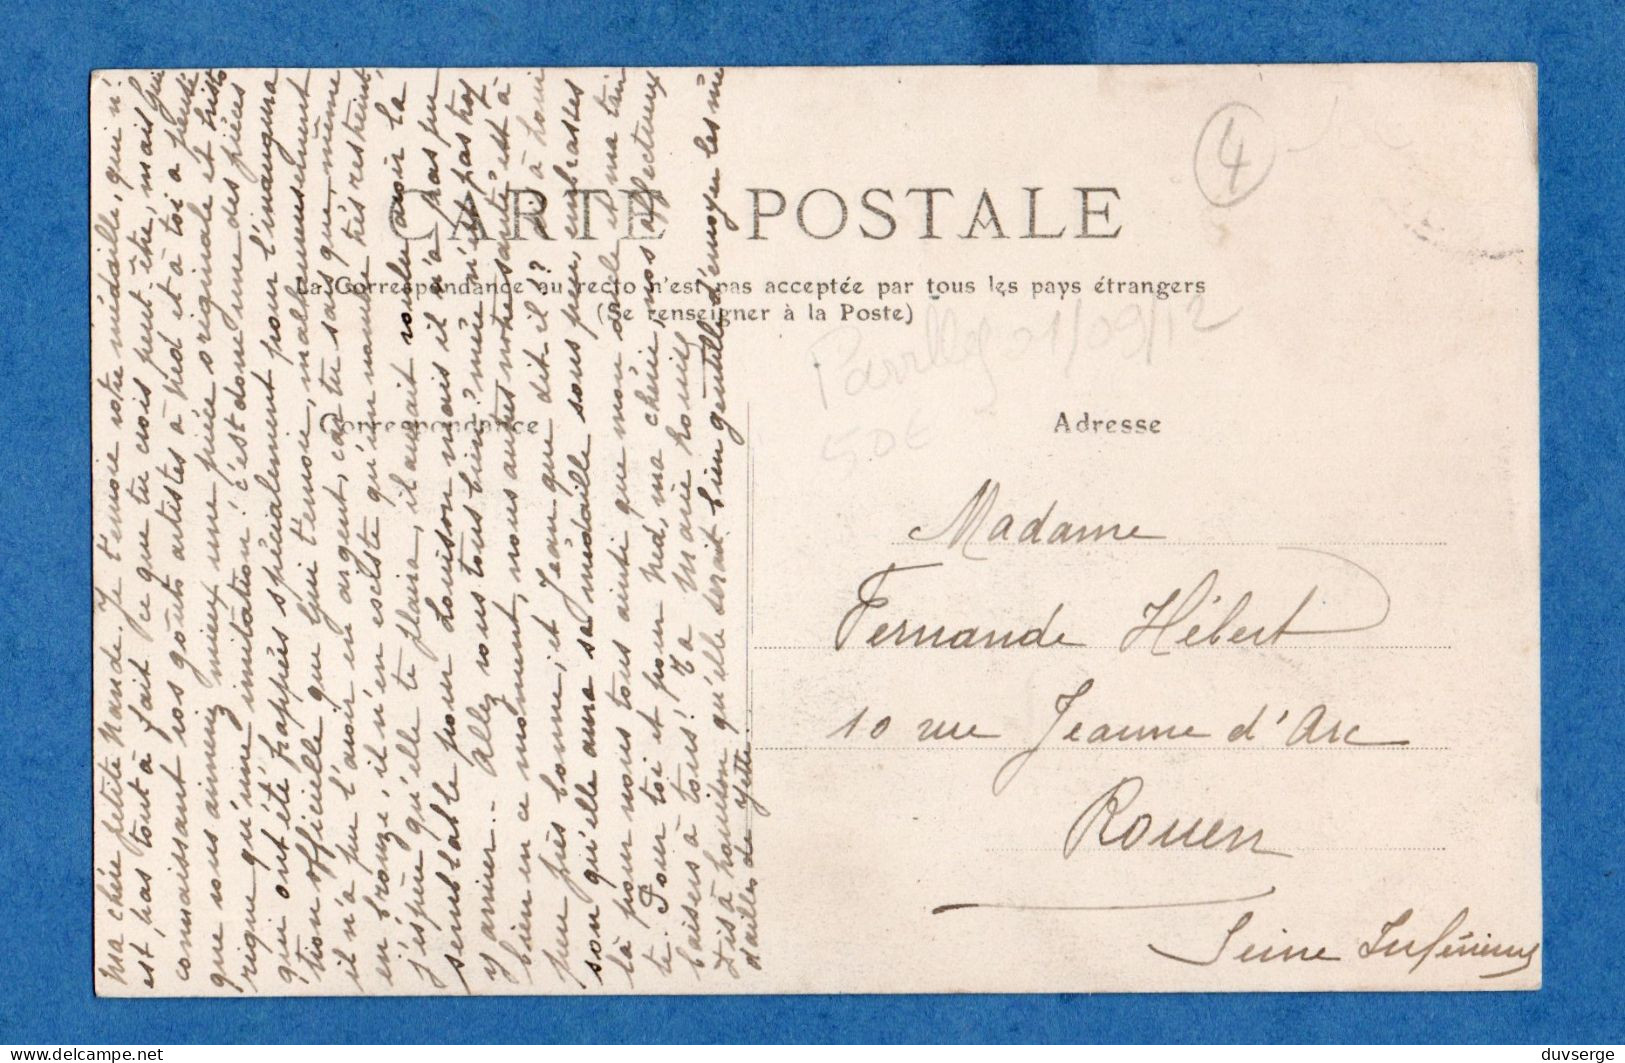 4
CARTE POSTALE
La Correspondance au recto n'est pas acceptée par tous les pays étrangers
(Se renseigner à la Poste)
01/09/12
50€
Correspondance
Adresse
Madame
Fernande Hébert
10 rue Jeanne d'Arc
Rouen
Seine Inférieure
Ma chère petite Nande. Je t'envoie votre médaille, qui n'
est, pas tout à fait ce que tu crois peut-être, mais Gui
connaissant vos goûts artistes à Ned et à toi a pensé
que vous aimiez mieux une pièce originale et histo
rique qu'une imitation! c'est donc une des pièces
qui ont été frappées spécialement pour l'inaugura
tion officielle que Gui t'envoie, malheureusement
il n'a pu l'avoir en argent, car tu sais que, même
en bronze, il n'en existe qu'un nombre très restreint,
j'espère qu'elle te plaira, il aurait voulu avoir la
semblable pour Louison mais il n'a pas pu
y arriver.. Allez vous tous bien? mère n'est pas trop
bien en ce moment, nous autres notre santé est à
peu près bonne, et Jean que dit il?
son qu'elle aura sa médaille sous peu, embrasses
là pour nous tous ainsi que mon oncle et ma tan
te. Pour toi et pour Ned, ma chérie, nos affectueux
baisers à tous! Ta Marie
Dis à Louison qu'elle serait bien gentille d'envoyer les
d'ailles de Yette.
duvserge
delcampe.net